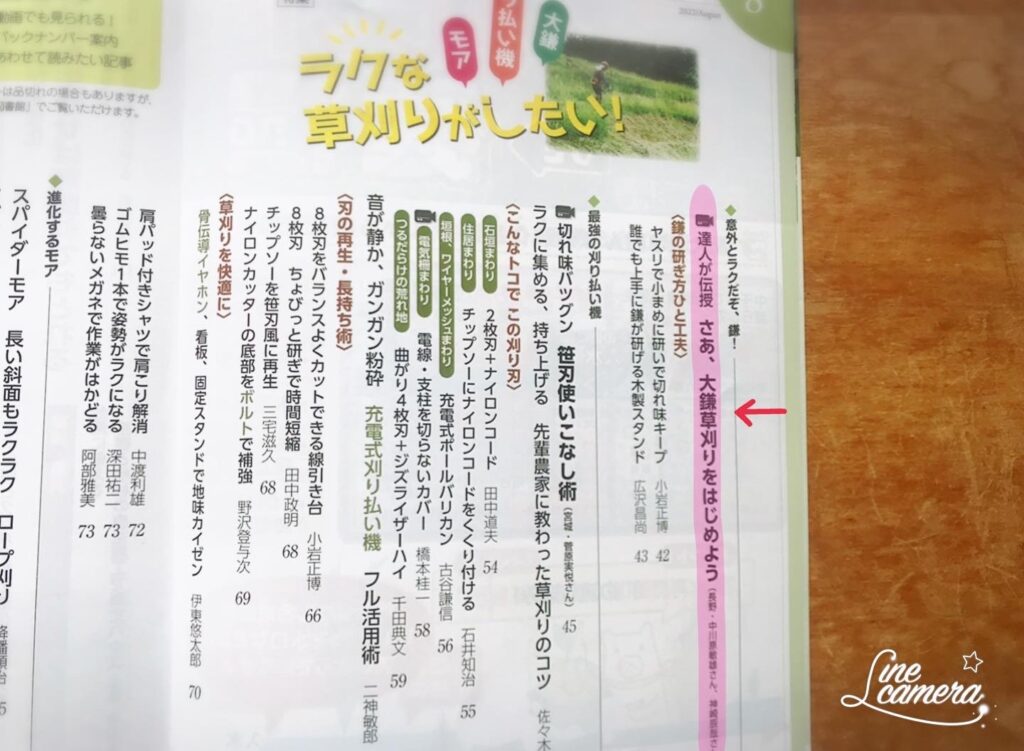 2023/August
8
特集
大鎌
刈り払い機
モア
ラクな
草刈りがしたい！
◆意外とラクだぞ、鎌！
達人が伝授 さあ、大鎌草刈りをはじめよう（長野・中川原敏雄さん、神崎辰哉さ
〈鎌の研ぎ方ひと工夫〉
ヤスリで小まめに研いで切れ味キープ 小岩正博 42
誰でも上手に鎌が研げる木製スタンド 広沢昌尚 43
◆最強の刈り払い機
切れ味バツグン 笹刃使いこなし術（宮城・菅原実悦さん）45
ラクに集める、持ち上げる 先輩農家に教わった草刈りのコツ 佐々木
〈こんなトコで この刈り刃〉
石垣まわり 2枚刃＋ナイロンコード 田中道夫 54
住居まわり チップソーにナイロンコードをくくり付ける 石井知治 55
垣根、ワイヤーメッシュまわり 充電式ポールバリカン 古谷謙信 56
電気柵まわり 電線・支柱を切らないカバー 橋本桂一 58
つるだらけの荒れ地 曲がり4枚刃＋ジズライザーハイ 千田典文 59
音が静か、ガンガン粉砕 充電式刈り払い機 フル活用術 二神敏郎
〈刃の再生・長持ち術〉
8枚刃をバランスよくカットできる線引き台 小岩正博 66
8枚刃 ちょびっと研ぎで時間短縮 田中政明 68
チップソーを笹刃風に再生 三宅滋久 68
ナイロンカッターの底部をボルトで補強 野沢登与次 69
〈草刈りを快適に〉
骨伝導イヤホン、看板、固定スタンドで地味カイゼン 伊東悠太郎 70
肩パッド付きシャツで肩こり解消 中渡利雄 72
ゴムヒモ1本で姿勢がラクになる 深田祐二 73
曇らないメガネで作業がはかどる 阿部雅美 73
◆進化するモア
スパイダーモア 長い斜面もラクラク ロープ刈り
動画でも見られる！
バックナンバー案内
あわせて読みたい記事
は品切れの場合もありますが、
図書館」でご覧いただけます。
Line camera